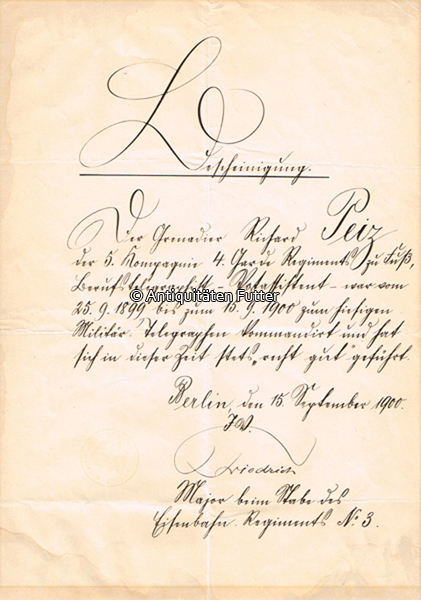 Bescheinigung.
Der Grenadier Richard Peiz
der 5. Kompagnie 4. Garde Regiments zu Fuß,
Berufstelegraphist – Postassistent – war vom
© Antiquitäten Futter
25. 9. 1899 bis zum 15. 9. 1900 zum hiesigen
Militär. Telegraphen kommandirt und hat
sich in dieser Zeit stets recht gut geführt.
Berlin, den 15. September 1900.
J.V.
Friedrich
Major beim Stabe des
Eisenbahn. Regiments No 3.